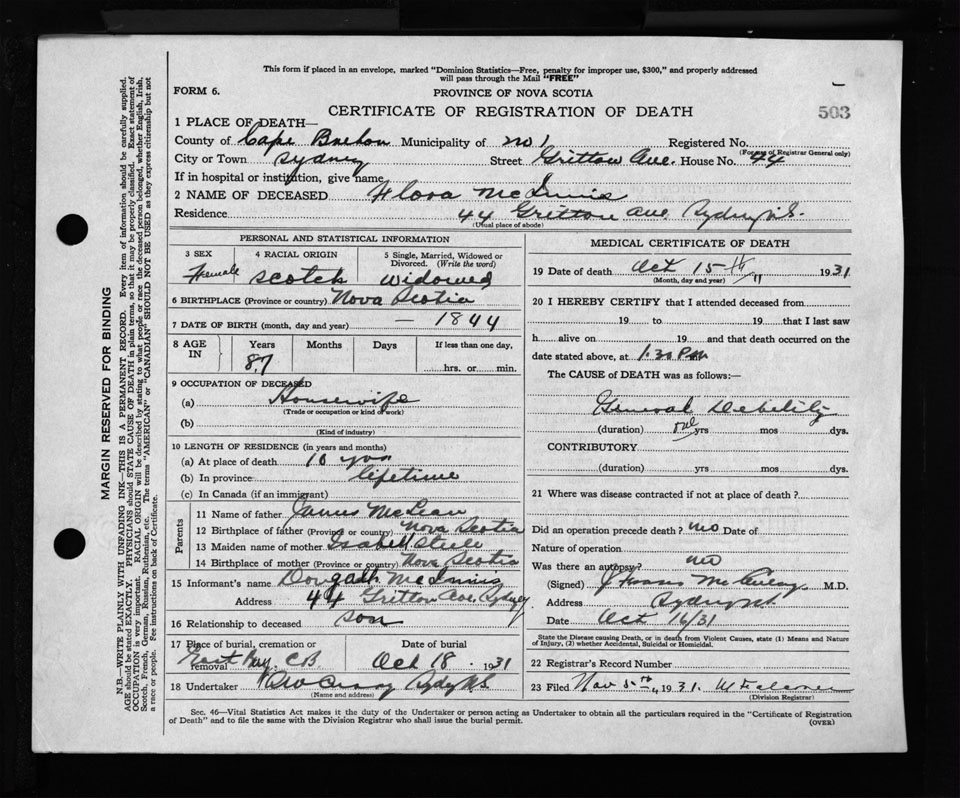 This form if placed in an envelope, marked "Dominion Statistics—Free, penalty for improper use, $300," and properly addressed
will pass through the Mail "FREE"
FORM 6.
PROVINCE OF NOVA SCOTIA
CERTIFICATE OF REGISTRATION OF DEATH
503
1 PLACE OF DEATH—
County of Cape Breton Municipality of No 1 Registered No.
(For use of Registrar General only)
City or Town Sydney Street Gritton Ave. House No. 44
If in hospital or institution, give name
2 NAME OF DECEASED Flora McInnis
Residence 44 Gritton Ave Sydney N.S.
(Usual place of abode)
PERSONAL AND STATISTICAL INFORMATION
3 SEX Female
4 RACIAL ORIGIN Scotch
5 Single, Married, Widowed or Divorced. (Write the word) widowed
6 BIRTHPLACE (Province or country) Nova Scotia
7 DATE OF BIRTH (month, day and year) — 1844
8 AGE IN Years 87 Months Days If less than one day, hrs. or min.
9 OCCUPATION OF DECEASED
(a) Housewife
(Trade or occupation or kind of work)
(b)
(Kind of industry)
10 LENGTH OF RESIDENCE (in years and months)
(a) At place of death 10 yrs
(b) In province lifetime
(c) In Canada (if an immigrant)
Parents
11 Name of father James McLean
12 Birthplace of father (Province or country) Nova Scotia
13 Maiden name of mother Isabell Steele
14 Birthplace of mother (Province or country) Nova Scotia
15 Informant's name Dougald McInnis
Address 44 Gritton Ave. Sydney
16 Relationship to deceased son
17 Place of burial, cremation or removal East Bay, C B
Date of burial Oct 18. 1931
18 Undertaker Sydney N.S.
(Name and address)
MEDICAL CERTIFICATE OF DEATH
19 Date of death Oct 15th 1931
(Month, day and year)
20 I HEREBY CERTIFY that I attended deceased from
19 to 19 that I last saw
h alive on 19 and that death occurred on the
date stated above, at 1.30 P.M.
The CAUSE of DEATH was as follows:—
General Debility
(duration) yrs mos dys.
CONTRIBUTORY
(duration) yrs. mos. dys.
21 Where was disease contracted if not at place of death?
Did an operation precede death? no Date of
Nature of operation
Was there an autopsy? no
(Signed) M.D.
Address Sydney N.S.
Date Oct 16/31
State the Disease causing Death, or in death from Violent Causes, state (1) Means and Nature
of Injury, (2) whether Accidental, Suicidal or Homicidal.
22 Registrar's Record Number
23 Filed Nov 5th, 1931.
(Division Registrar)
Sec. 46—Vital Statistics Act makes it the duty of the Undertaker or person acting as Undertaker to obtain all the particulars required in the "Certificate of Registration
of Death" and to file the same with the Division Registrar who shall issue the burial permit.
(OVER)
MARGIN RESERVED FOR BINDING
N.B.—WRITE PLAINLY WITH UNFADING INK—THIS IS A PERMANENT RECORD. Every item of information should be carefully supplied.
AGE should be stated EXACTLY. PHYSICIANS should STATE CAUSE OF DEATH in plain terms, so that it may be properly classified. Exact statement of
OCCUPATION is very important. RACIAL ORIGIN will be described by stating to what people or race the deceased person belonged, whether English, Irish,
Scotch, French, German, Russian, Ruthenian, etc. The terms "AMERICAN" or "CANADIAN" SHOULD NOT BE USED as they express citizenship but not
a race or people. See instructions on back of Certificate.